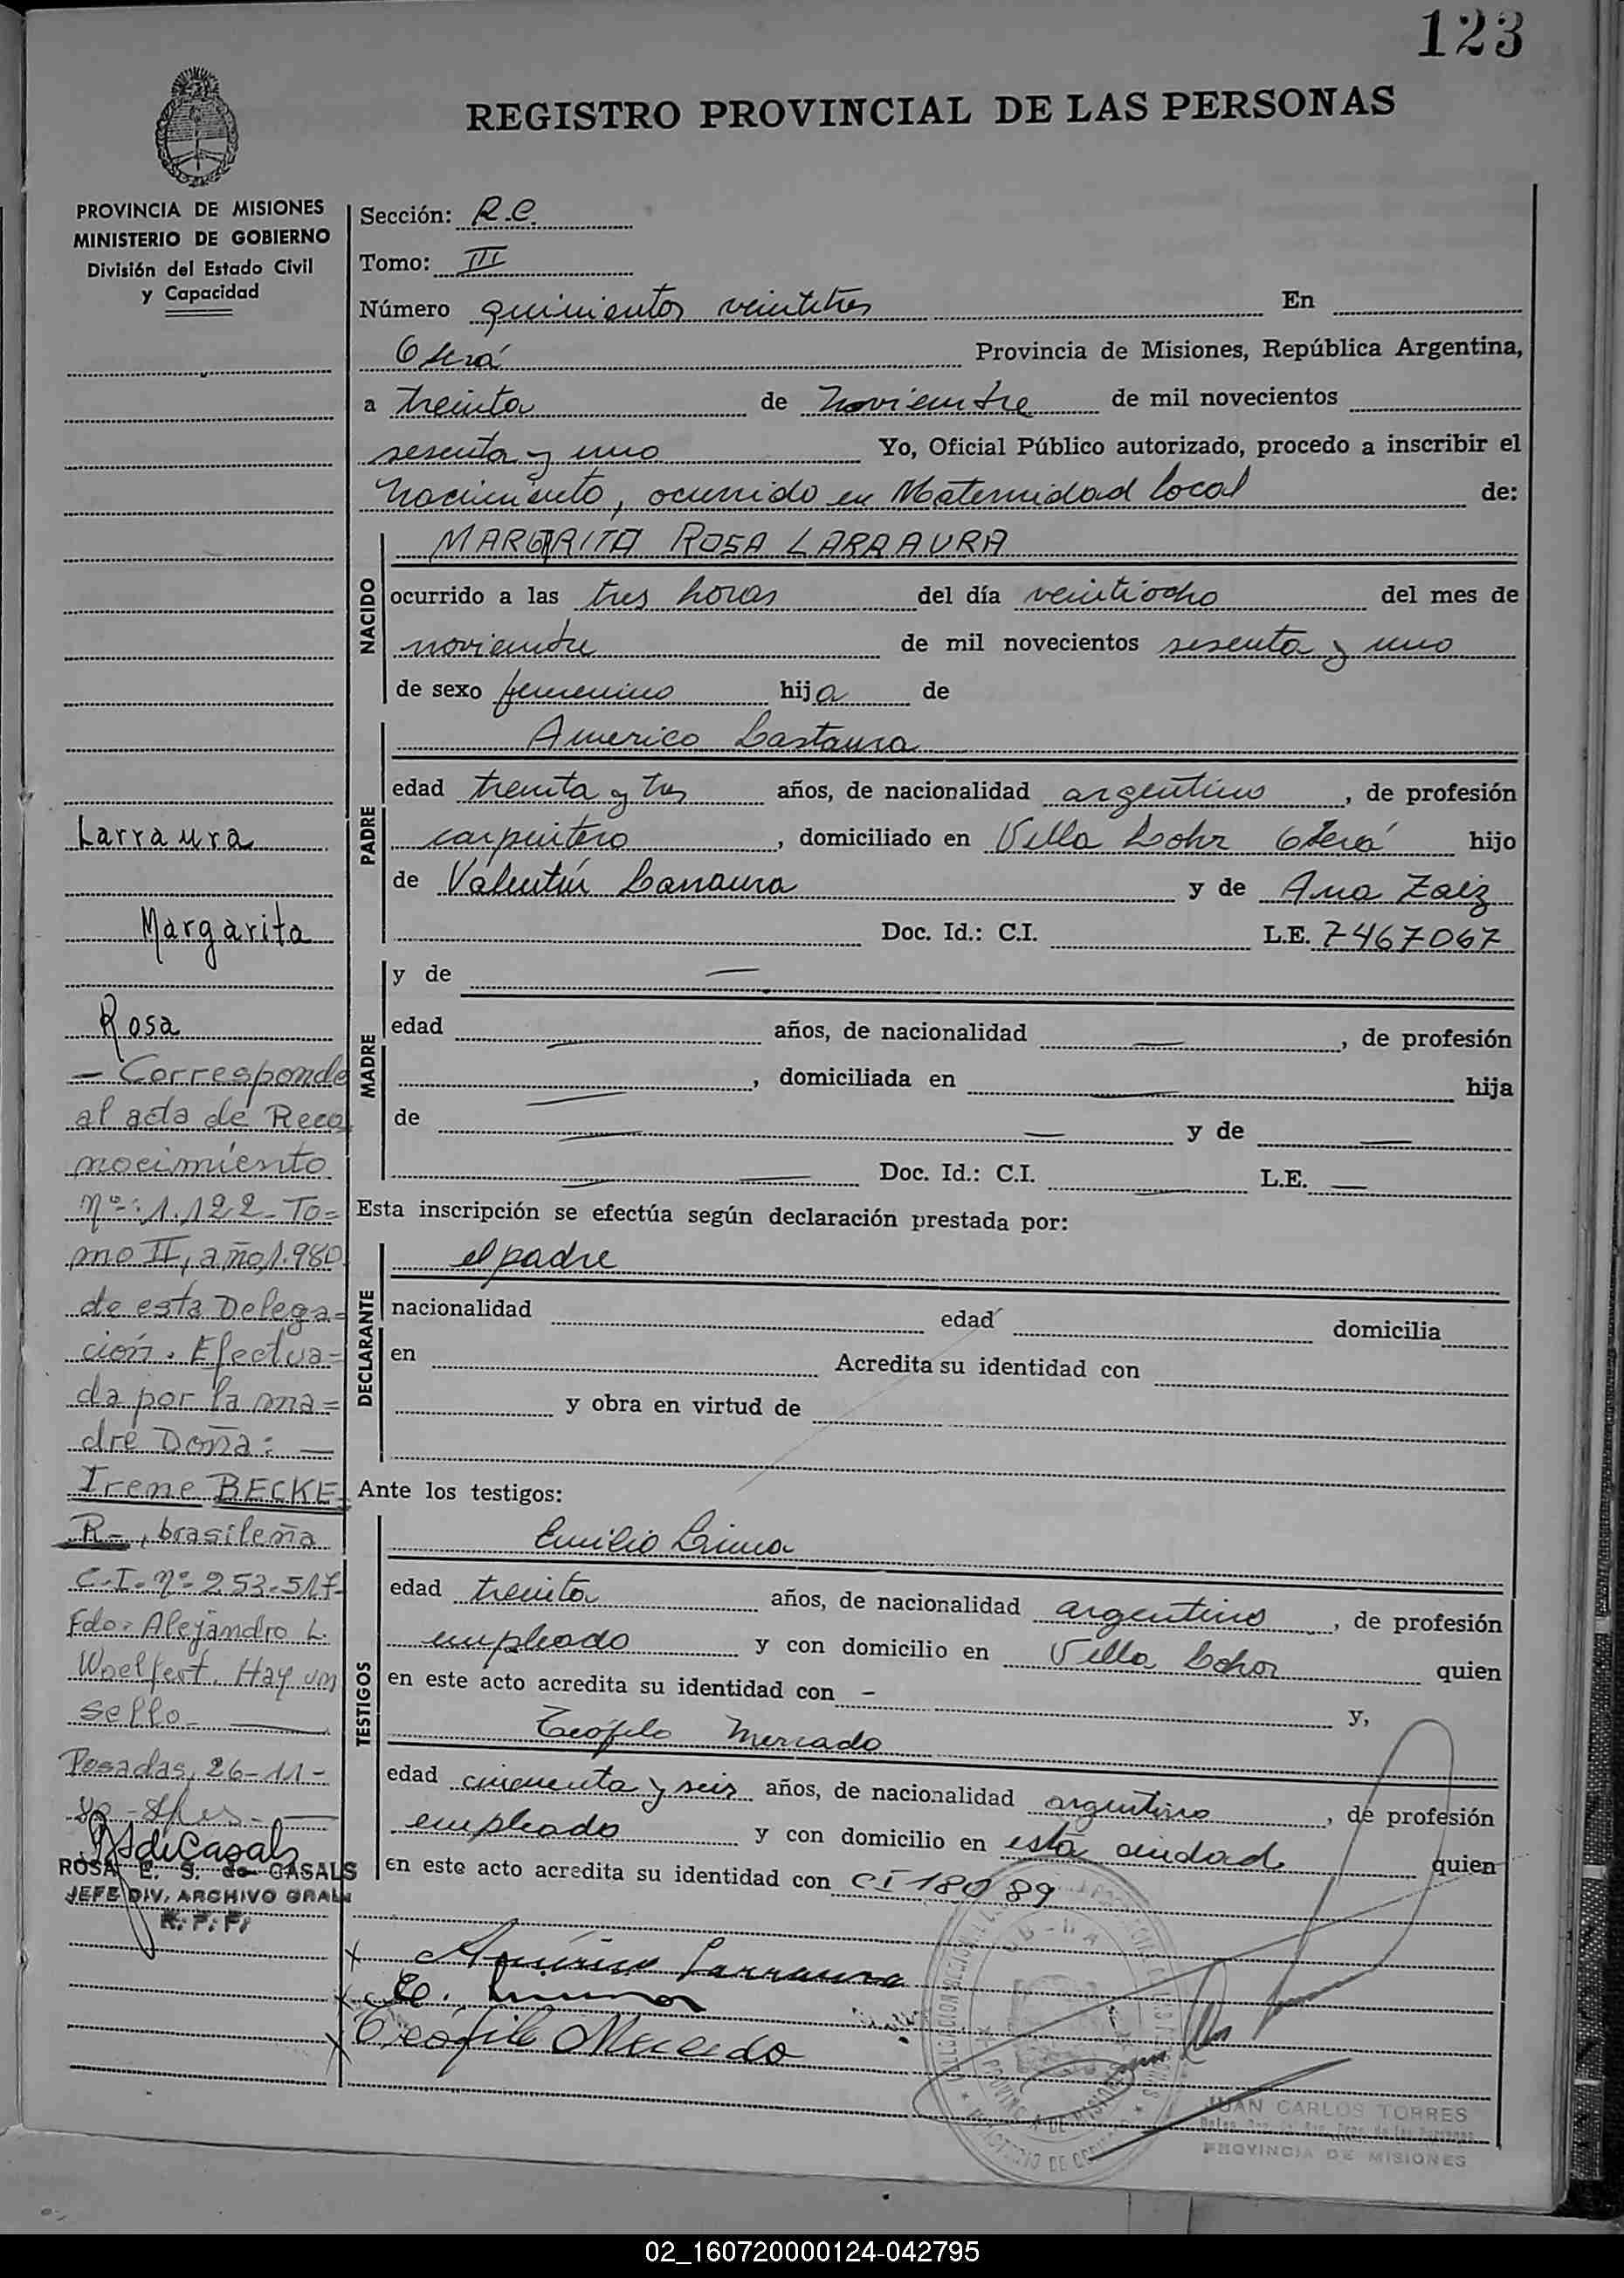 123
REGISTRO PROVINCIAL DE LAS PERSONAS
PROVINCIA DE MISIONES
MINISTERIO DE GOBIERNO
División del Estado Civil
y Capacidad
Larraura
Margarita
Rosa
- Corresponde
al acta de Reco
nocimiento
nº: 1.122 - To=
mo II, año 1.980
de esta Delega=
ción. Efectua=
da por la ma=
dre Doña: —
Irene BECKE=
R-, brasileña
C.I. nº 253.517-
Fdo. Alejandro L.
Woelfert. Hay un
sello. —
Posadas, 26-11-
ROSA E. S. de CASALS
JEFE DIV. ARCHIVO GRAL.
R. P. P.
Sección: R.C.
Tomo: III
Número quinientos veintitres En
Oberá Provincia de Misiones, República Argentina,
a treinta de noviembre de mil novecientos
sesenta y uno Yo, Oficial Público autorizado, procedo a inscribir el
Nacimiento, ocurrido en Maternidad local de:
NACIDO
MARGARITA ROSA LARRAURA
ocurrido a las tres horas del día veintiocho del mes de
noviembre de mil novecientos sesenta y uno
de sexo femenino hija de
PADRE
Americo Larraura
edad treinta y tres años, de nacionalidad argentino, de profesión
carpintero, domiciliado en Villa Lohr Oberá hijo
de Valentín Larraura y de Ana Zaiz
Doc. Id.: C.I. L.E. 7467067
MADRE
y de —
edad — años, de nacionalidad —, de profesión
—, domiciliada en — hija
de — — y de —
— — Doc. Id.: C.I. — L.E. —
Esta inscripción se efectúa según declaración prestada por:
DECLARANTE
el padre
nacionalidad edad domicilia
en Acredita su identidad con
y obra en virtud de
Ante los testigos:
TESTIGOS
Emilio Lima
edad treinta años, de nacionalidad argentino, de profesión
empleado y con domicilio en Villa Lohr quien
en este acto acredita su identidad con - y,
Teófilo Mercado
edad cincuenta y seis años, de nacionalidad argentino, de profesión
empleado y con domicilio en esta ciudad quien
en este acto acredita su identidad con CI 18089
Américo Larraura
Teófilo Mercado
JUAN CARLOS TORRES
PROVINCIA DE MISIONES
02_160720000124-042795